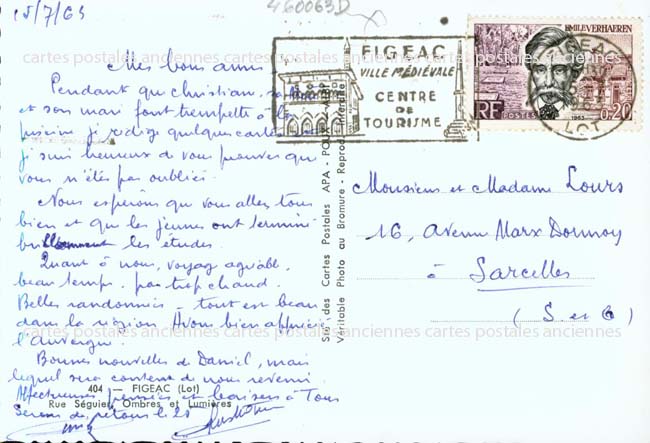 15/7/63
460063D
Mes bons amis
Pendant que Christian,
et son mari font trempette à la
piscine je rédige quelques cartes
je suis heureux de vous prouver que
vous n'êtes pas oubliés.
Nous espérons que vous allez tous
bien et que les jeunes ont terminé
brillamment les études.
Quant à nous, voyage agréable,
beau temps, pas trop chaud.
Belles randonnées - tout est beau
dans la région. Avons bien apprécié
l'Auvergne.
Bonnes nouvelles de Daniel, mais
lequel sera content de nous revenir.
Affectueuses pensées et baisers à Tous
Serons de retour le 21
404 — FIGEAC (Lot)
Rue Séguier, Ombres et Lumières
Sté des Cartes Postales APA - POUX - ALBI
Véritable Photo au Bromure - Reprod. Interdite
FIGEAC
VILLE MÉDIÉVALE
CENTRE
DE
TOURISME
EMILE VERHAEREN
RF
POSTES
0,20
FIGEAC
1963
LOT
Monsieur et Madame Lours
16, Avenue Marx Dormoy
à Sarcelles
(S. et O)
cartes postales anciennes cartes postales anciennes cartes postales anciennes
cartes postales anciennes cartes postales anciennes cartes postales anciennes